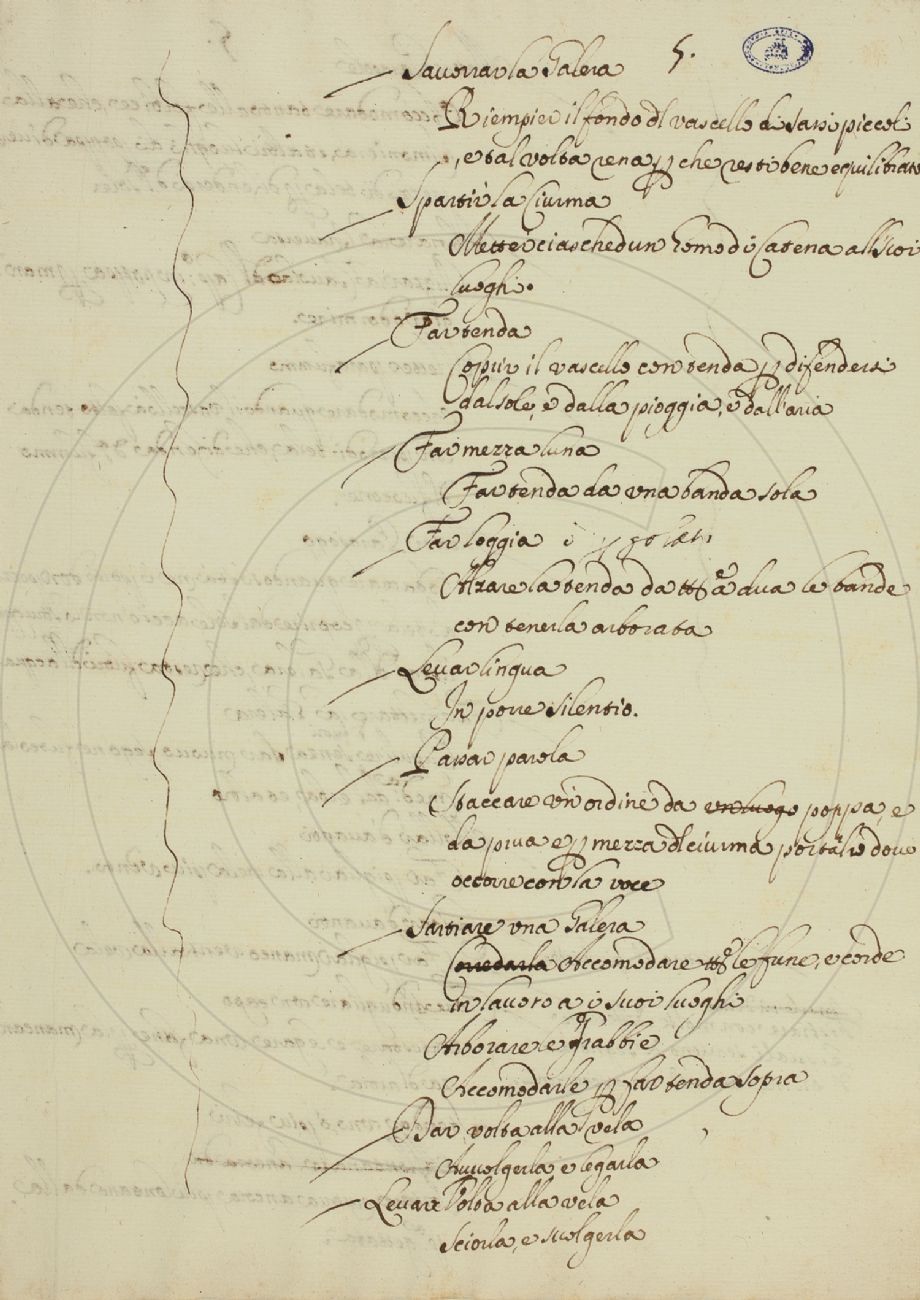 Savorrar la Galera 5.
Riempier il fondo dl vascello di sassi piccoli
, e tal volta rena p che resti bene equilibrato
Spartir la Ciurma
Metter ciaschedun homo di Catena alli suoi
luoghi.
Far tenda
Coprir il vascello con tenda p difendersi
dal sole, e dalla pioggia, e dall'aria
Far mezza luna
Far tenda da una banda sola
Far loggia
Alzare la tenda da tte a dua le bande
con tenerla arborata
Levar lingua
Imporre silentio.
Passar parola
Staccare un ordine da un luogo poppa, e
da prua e p mezza dl ciurma portarlo dove
occorre con la voce
Sartiare una Galera
Corredarla Accomodare tte le fune, e corde
in lavoro a i suoi luoghi
Arborare le Gabbie
Accomodarle p far tenda sopra
Dar volta alla vela
Avvolgerla e legarla
Levare Volta alla vela
Sciorla, e svolgerla